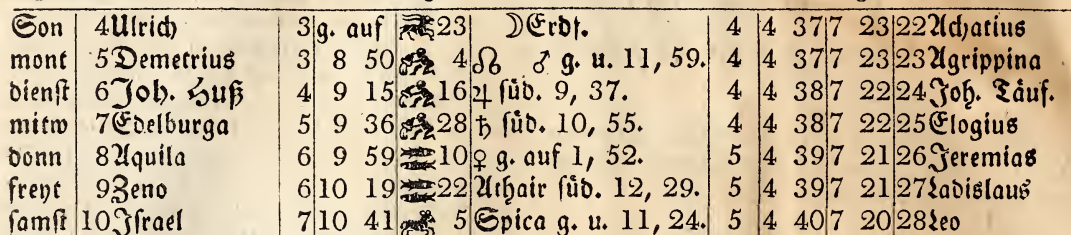 Son 4 Ulrich 3 g. auf 23 ☽Erdf. 4 4 37 7 23 22 Achatius
mont 5 Demetrius 3 8 50 4 ☊ ♂ g. u. 11, 59. 4 4 37 7 23 23 Agrippina
dienſt 6 Joh. Huß 4 9 15 16 ♃ ſüd. 9, 37. 4 4 38 7 22 24 Joh. Täuf.
mitw 7 Edelburga 5 9 36 28 ♄ ſüd. 10, 55. 4 4 38 7 22 25 Elogius
donn 8 Aquila 6 9 59 10 ♀ g. auf 1, 52. 5 4 39 7 21 26 Jeremias
freyt 9 Zeno 6 10 19 22 Athair ſüd. 12, 29. 5 4 39 7 21 27 Ladislaus
ſamſt 10 Iſrael 7 10 41 5 Spica g. u. 11, 24. 5 4 40 7 20 28 Leo